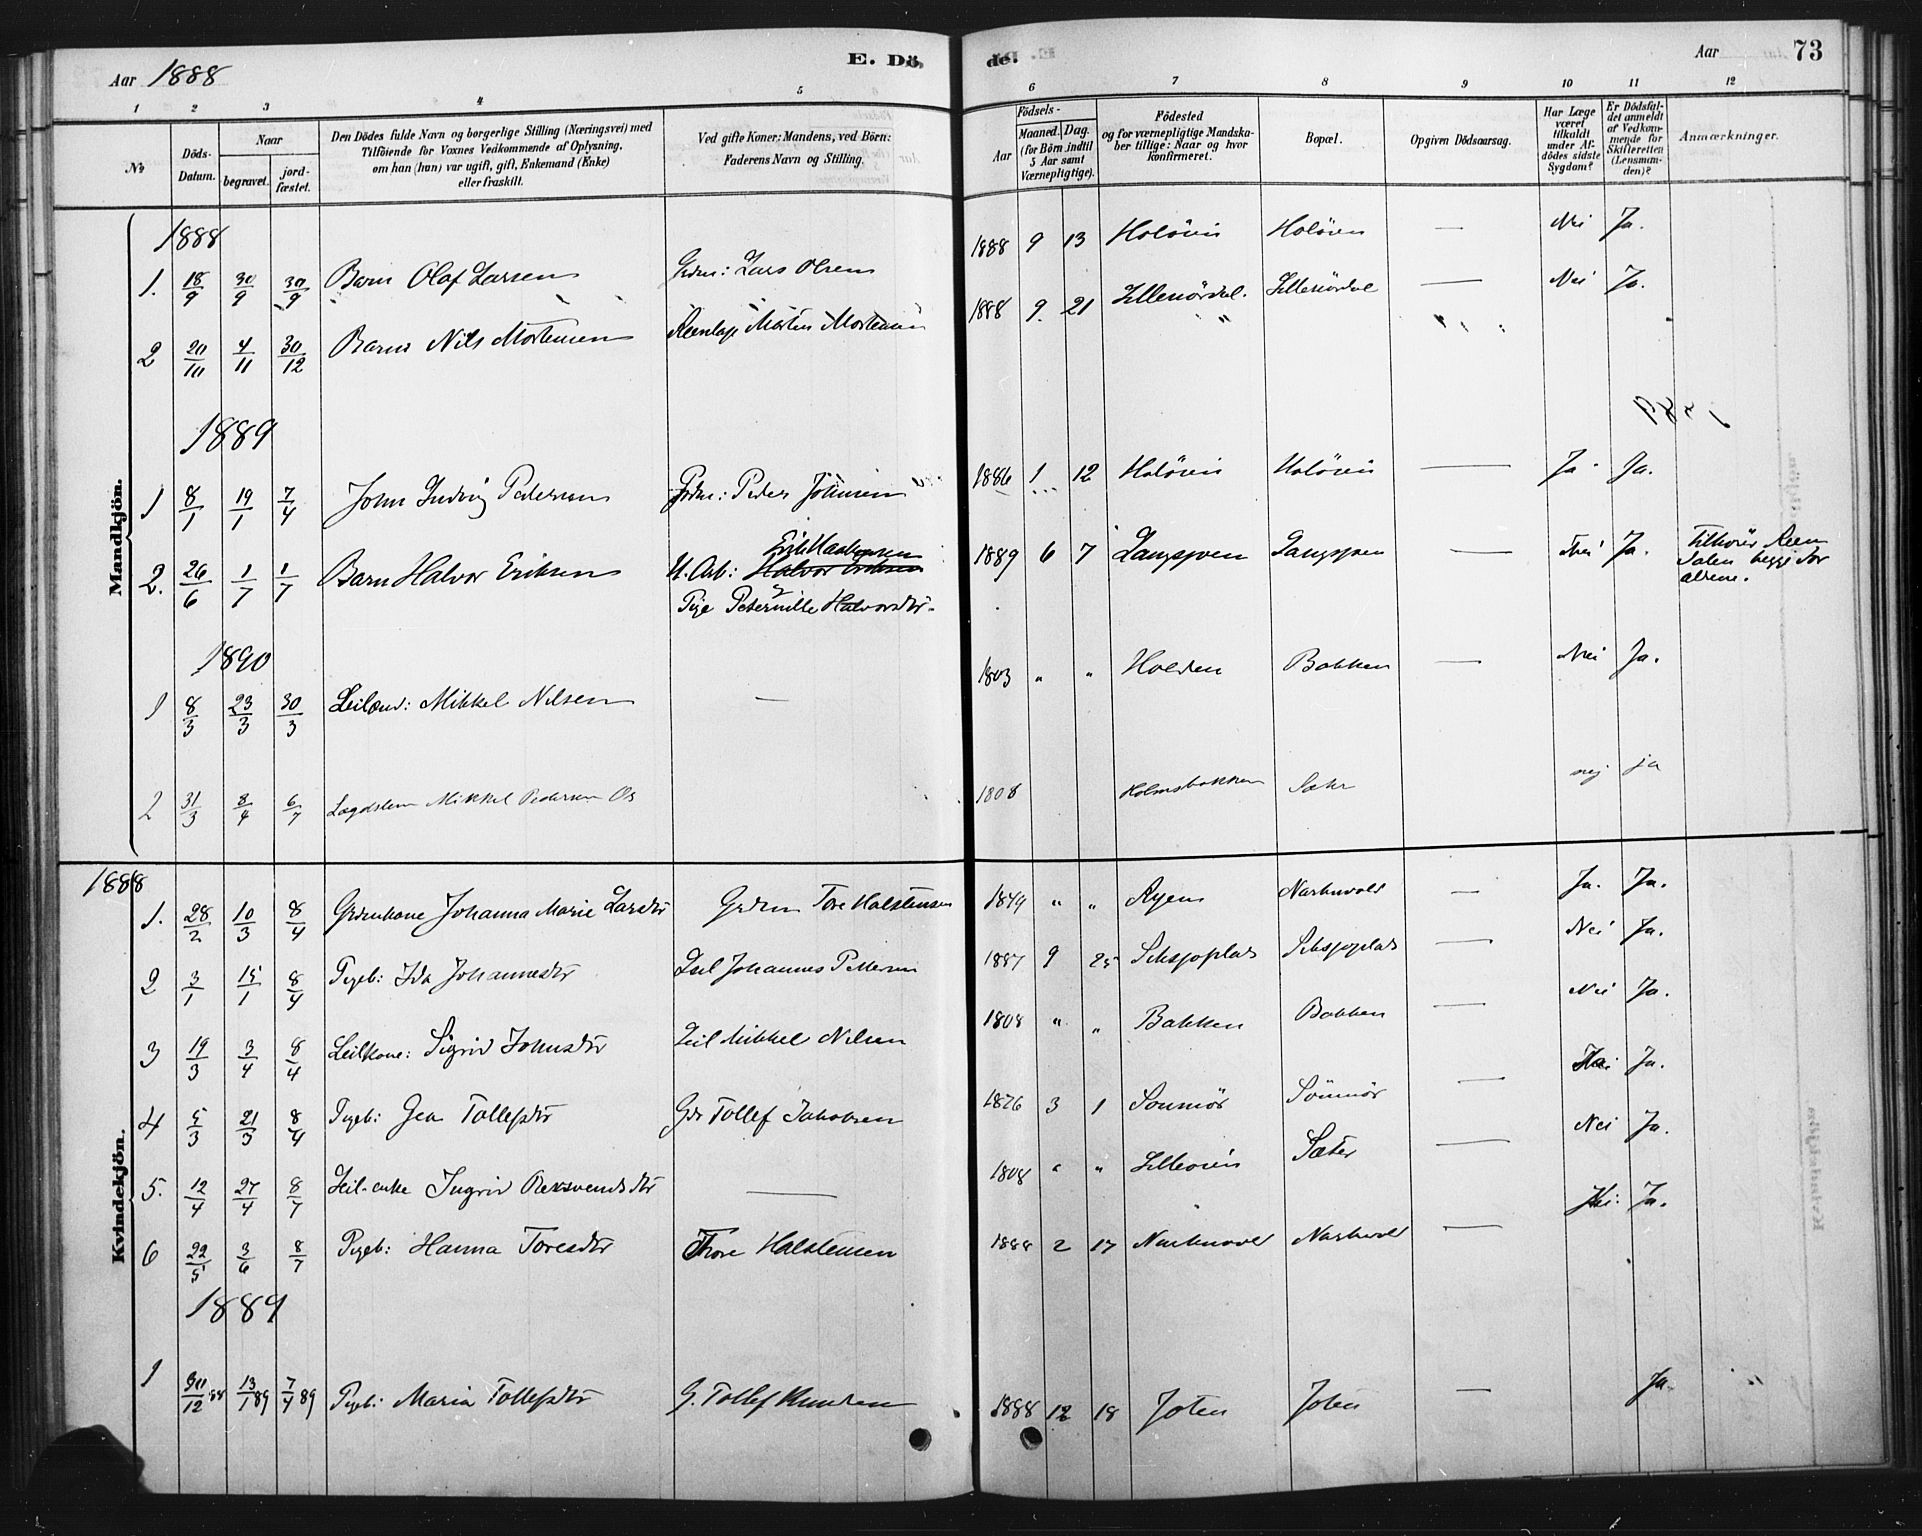 Aar 1888 E. Dö de. Aar 73
1 2 3 4 5 6 7 8 9 10 11 12
No
Döds-Datum.
Naar
begravet.
jord-fæstet.
Den Dödes fulde Navn og borgerlige Stilling (Næringsvei) med
Tilföiende for Voxnes Vedkommende af Oplysning,
om han (hun) var ugift, gift, Enkemand (Enke)
eller fraskilt.
Ved gifte Koner: Mandens, ved Börn:
Faderens Navn og Stilling.
Födsels-
Aar
Maaned. Dag.
(for Börn indtil
5 Aar samt
Værnepligtige).
Födested
og for værnepligtige Mandska-
ber tillige: Naar og hvor
konfirmeret.
Bopæl.
Opgiven Dödsaarsag.
Har Læge
været
tilkaldt
under Af-
dödes sidste
Sygdom?
Er Dödsfal-
det anmeldt
af Vedkom-
mende for
Skifteretten
(Lensman-
den)?
Anmærkninger.
Mandkjön.
1888
1. 18/9 30/9 30/9 Barn Olaf Larsen Grdm: Lars Olsen 1888 9 13 Holöien Holöien — Nei Ja.
2 20/10 4/11 30/12 Barn Nils Mortensen Reenlap Morten Mortensen 1888 9. 21 Lillenördal. Lillenördal — Nei Ja.
1889
1 8/1 19/1 7/4 John Ludvig Pedersen Grdm: Peder Johnsen 1886 1 12 Holöien Holöien — Ja Ja.
2. 26/6 1/7 1/7 Barn Halvor Eriksen U. Arb: Halvor Eriksen 1889 6 7 Langsjøen Langsjøen — Nei Ja.
Pige Peternille Halvorsdtr.
1890
1 8/3 23/3 30/3 Leilænd: Mikkel Nilsen — 1803 " " Holden Bakken — Nei Ja.
2 31/3 8/4 6/7 Lægdslem Mikkel Pedersen Os 1808 Holmsbakken Sæter nej ja
Kvindekjön.
1888
1. 28/2 10/3 8/4 Grdmkone Johanna Marie Larsdtr Grdm Tore Halstensen 1849 " " Ryen Narbuvold — Ja. Ja.
2 3/1 15/1 8/4 Pigeb: Ida Johannesdtr Leil Johannes Pettersen 1887 9 25 Siksjoplads Siksjoplads — Nei Ja.
3 19/3 3/4 8/4 Leilkone: Sigrid Johnsdtr Leil Mikkel Nilsen 1808 " " Bakken Bakken — Nei Ja.
4 5/3 21/3 8/4 Pigeb: Gea Tollefsdtr Gdr Tollef Jakobsen 1876 3 1 Sönmör Sönmör — Ja.
5. 12/4 27/4 8/7 Leil-enke Ingrid — 1808 " " Lilleöien Sæter — Nei Ja.
6 22/5 3/6 8/7 Pigeb: Hanna Toresdtr Thore Halstensen 1888 2 17 Narbuvold Narbuvold — Nei Ja.
1889
1 30/12 88 13/1 89 7/4 89 Pigeb: Maria Tollefsdtr G. Tollef Knudsen 1888 12 18 Joten Joten — Ja.